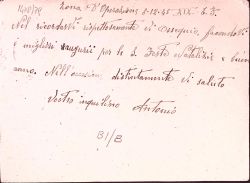 Zona d'Operazioni 8-12-41-XIX- E.F.
Nel ricordarti rispettosamente di ossequio
i migliori auguri per le S. Feste Natalizie e buon
anno. Nell'occasione distintamente vi saluto
Vostro inquilino Antonio
81/B